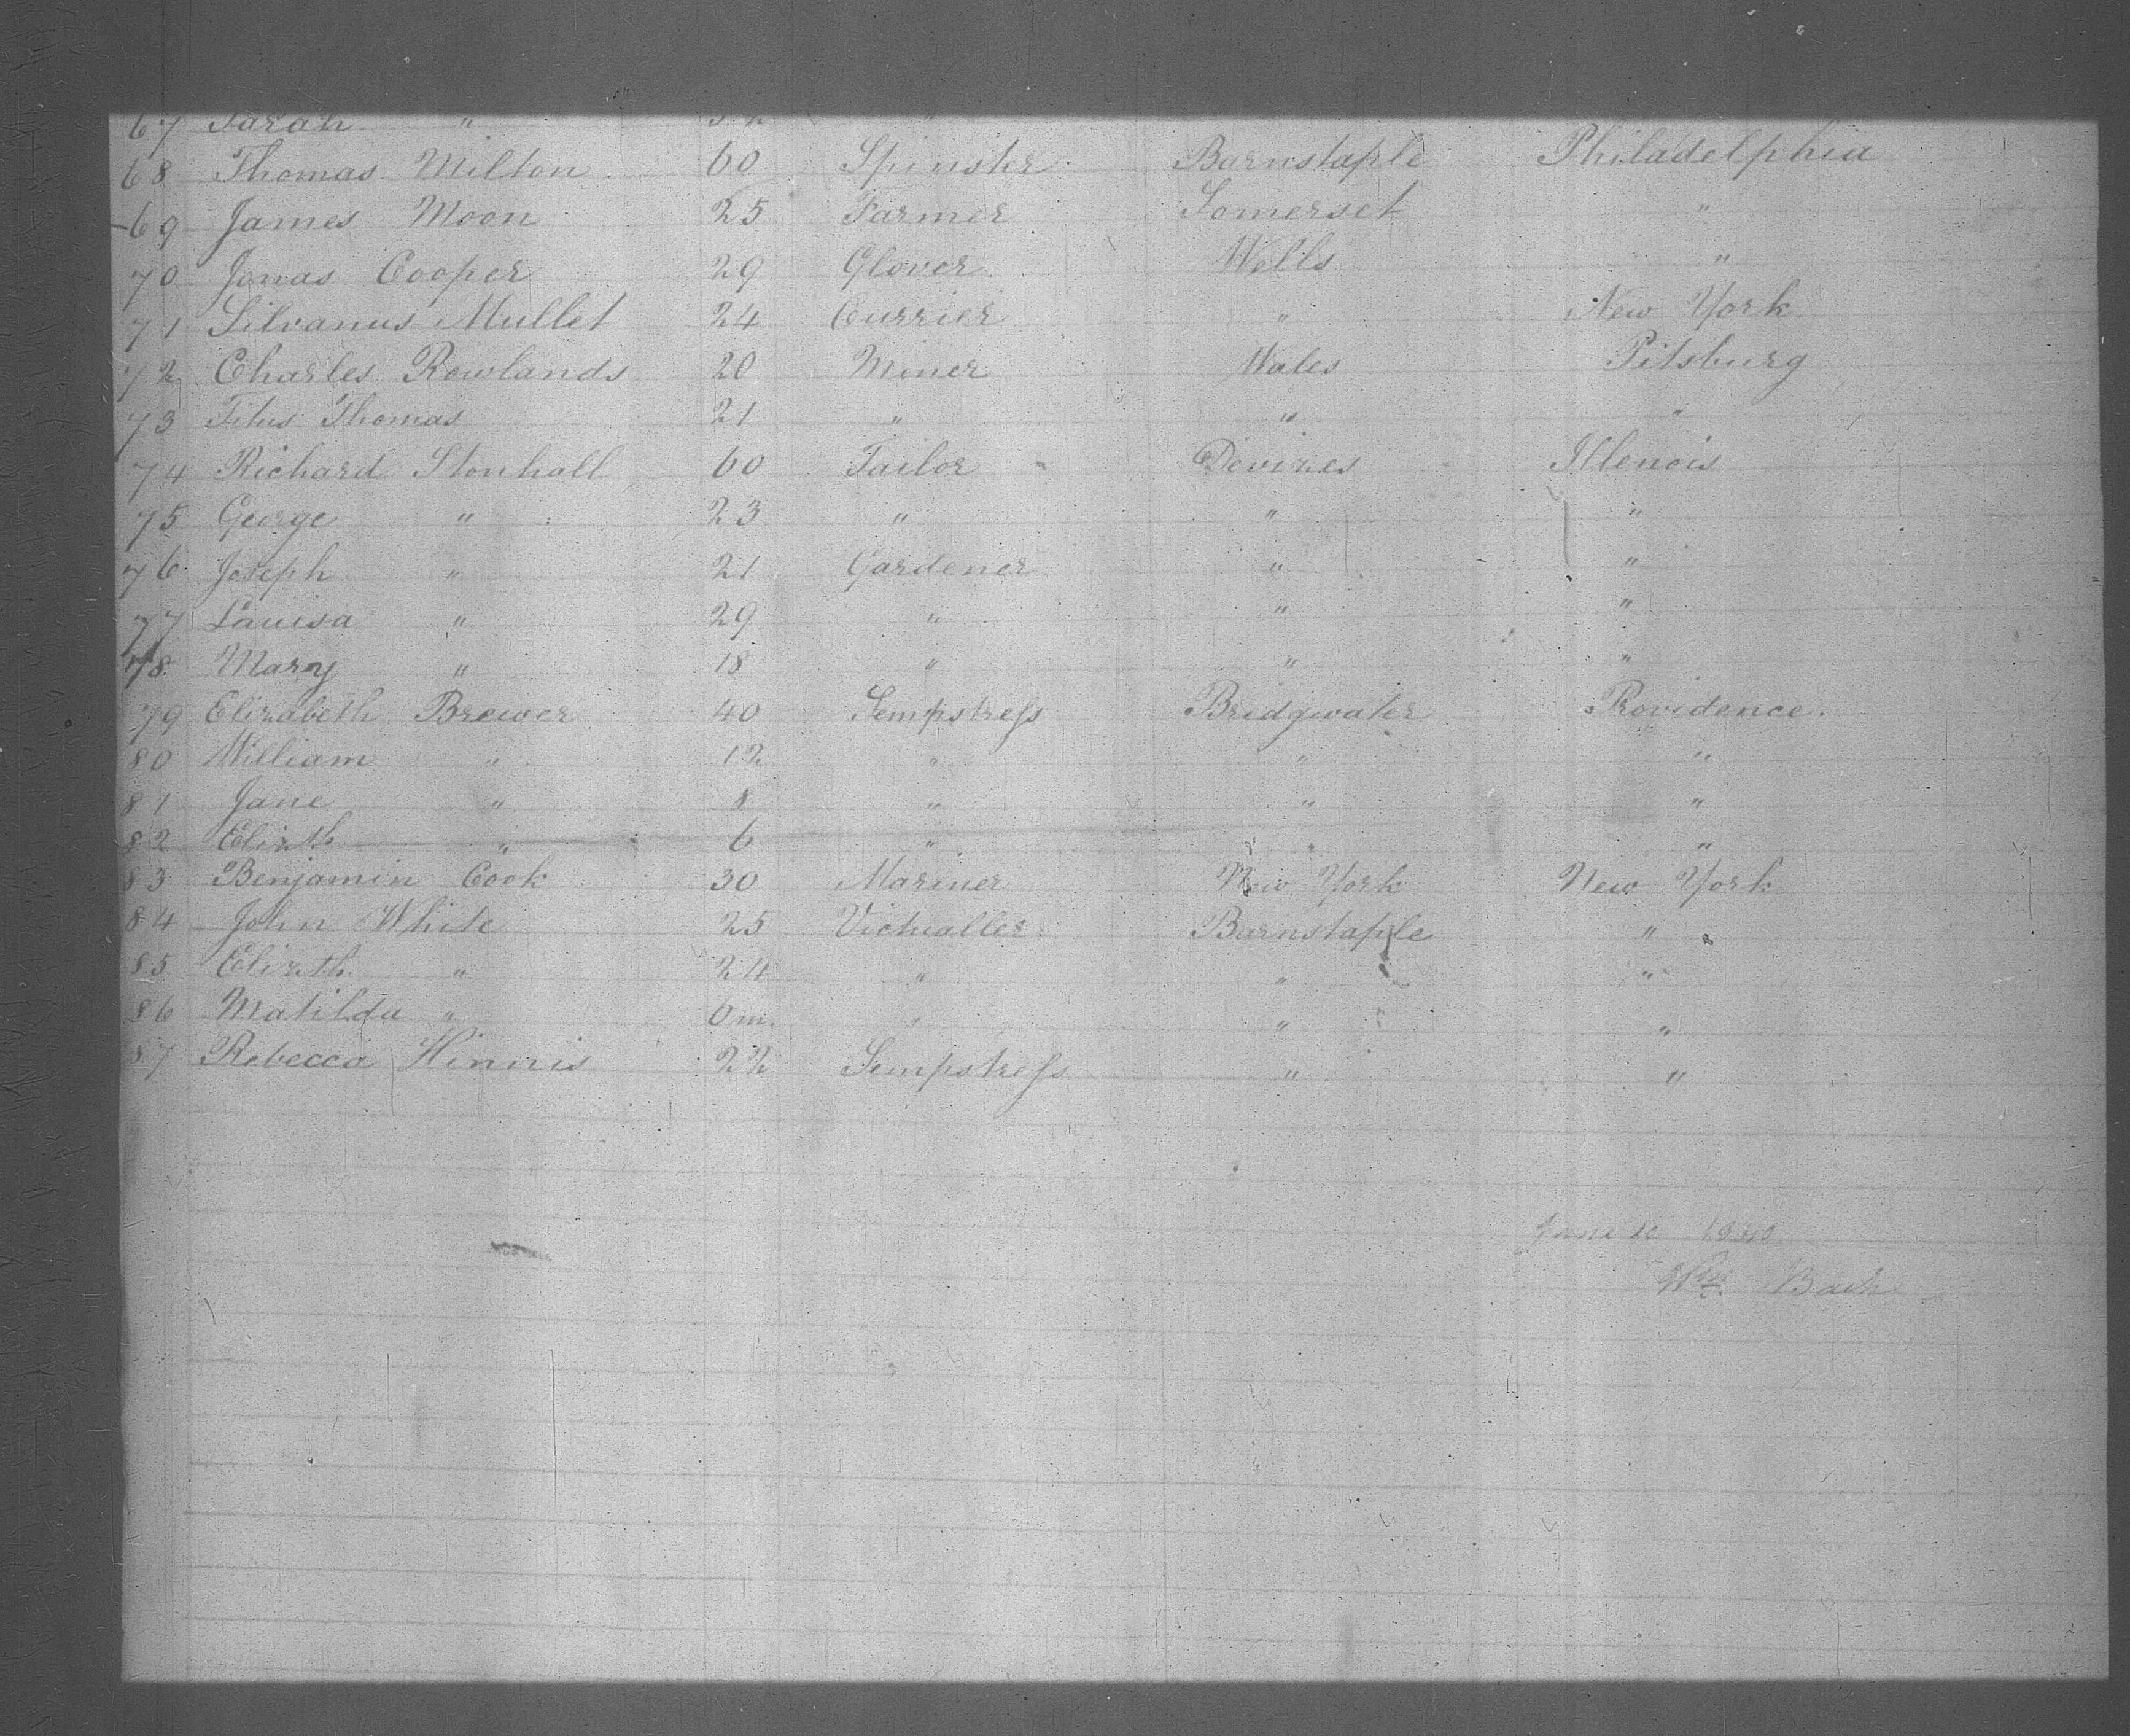 67 Sarah "
68 Thomas Milton 60 Spinster Barnstaple Philadelphia
69 James Moon 25 Farmer Somerset "
70 Jonas Cooper 29 Glover Wells "
71 Silvanus Mullet 24 Currier " New York
72 Charles Rowlands 20 Miner Wales Pitsburg
73 Titus Thomas 21 " " "
74 Richard Stonhall 60 Tailor Devizes Illenois
75 George " 23 " " "
76 Joseph " 21 Gardener " "
77 Louisa " 29 " " "
78 Mary " 18 " " "
79 Elizabeth Brewer 40 Sempstress Bridgwater Providence.
80 William " 12 " " "
81 Jane " 8 " " "
82 Elizth " 6 " " "
83 Benjamin Cook 30 Mariner New York New York
84 John White 25 Victualler Barnstaple "
85 Elizth " 24 " " "
86 Matilda " 0m. " " "
87 Rebecca Hinnis 22 Sempstress " "
June 10
Wm.